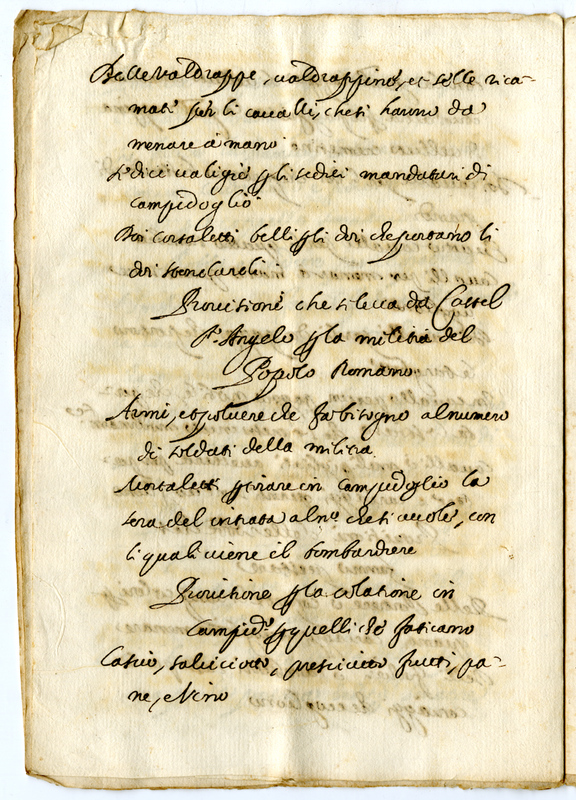 Delle valdrappe, valdrappine, et selle rica-
mate per li cavalli, che si hanno da
menare à mano
Sedici valigie p li sedici mandatari di
campidoglio
Doi corsaletti belli p li doi che portano li
doi
Provisione che si leva da Castel
S. Angelo p la militia del
Popolo Romano
Armi, et polvere che fa bisogno al numero
di soldati della militia
Mortaletti p tirare in campidoglio la
sera del intrata al n.o che si vuole, con
li quali viene il bombardiere
Provisione p la colatione in
Campid.o p quelli che faticano
Casio, salsiciotto, presciutto frutti, pa-
ne, e Vino